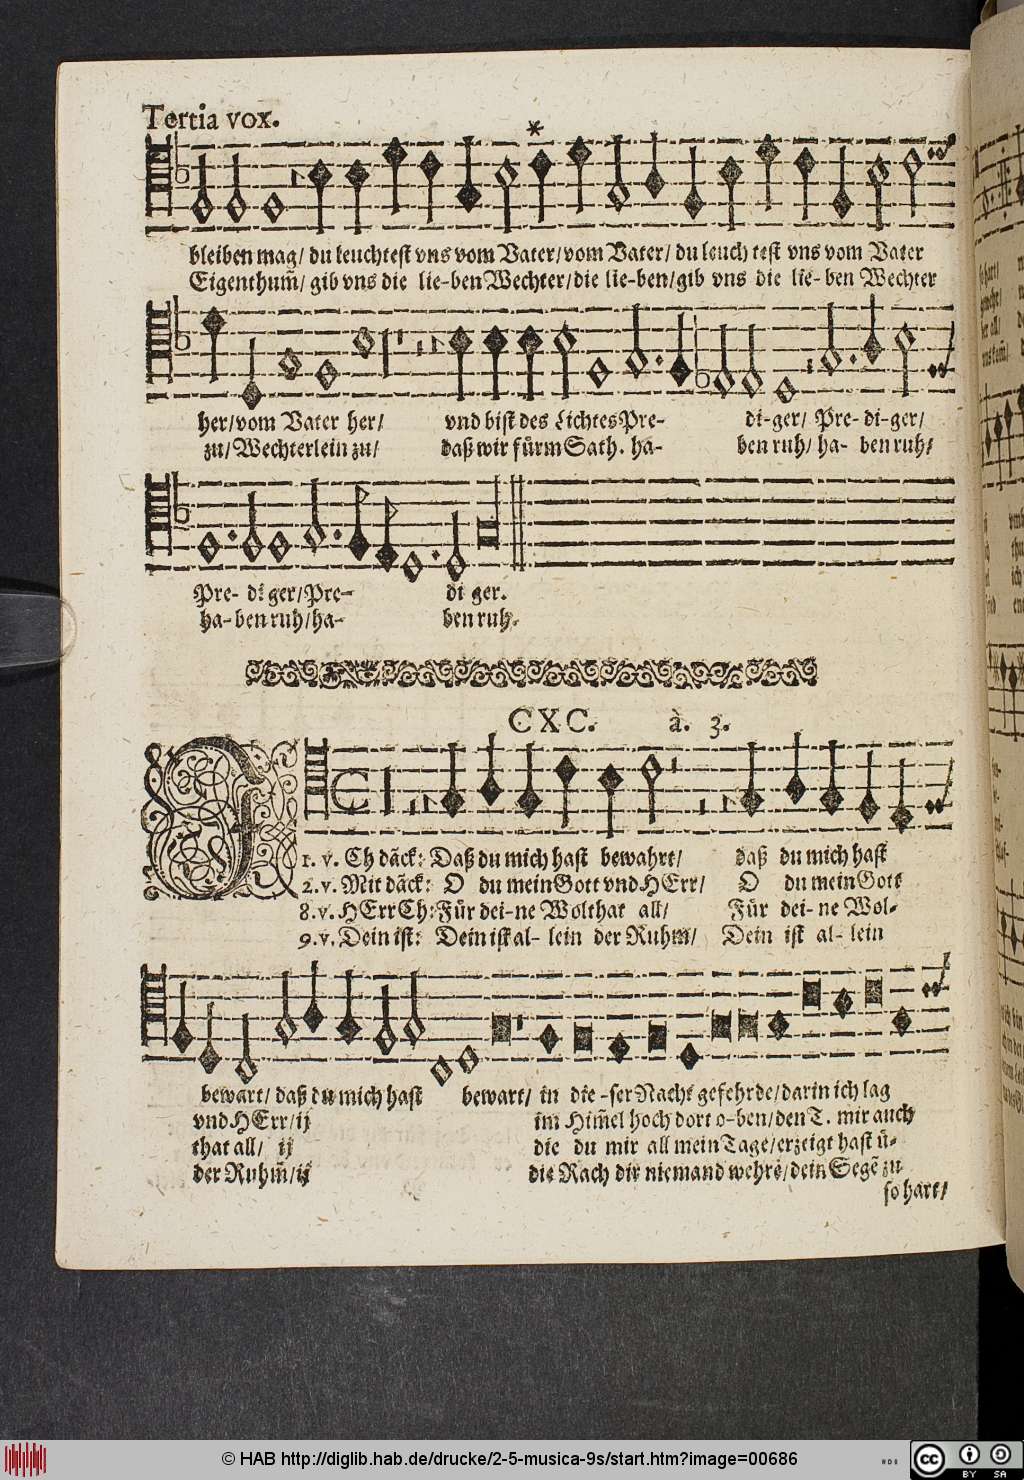 Tertia vox.
bleiben mag/ du leuchtest vns vom Vater/vom Vater/ du leuch test vns vom Vater
Eigenthum̃/ gib vns die lie-ben Wechter/die lie-ben/gib vns die lie-ben Wechter
her/vom Vater her/ vnd bist des Lichtes Pre- di-ger/ Pre-di-ger/
zu/Wechterlein zu/ daß wir fürm Sath. ha- ben ruh/ ha- ben ruh/
Pre- di ger/Pre- di ger.
ha-ben ruh/ha- ben ruh.
CXC. à. 3.
I
1. v. Ch dãck: Daß du mich hast bewahrt/ daß du mich hast
2. v. Mit dãck: O du mein Gott vnd HErr/ O du mein Gott
8. v. HErr Ch: Für dei-ne Wolthat all/ Für dei-ne Wol-
9. v. Dein ist: Dein ist al-lein der Ruhm/ Dein ist al-lein
bewart/ daß du mich hast bewart/ in die-ser Nacht gefehrde/darin ich lag
vnd HErr/ij im Him̃el hoch dort o-ben/den T. mir auch
that all/ ij die du mir all mein Tage/erzeigt hast ü-
der Ruhm̃/ij die Rach dir niemand wehrẽ/dein Segẽ zu
so hart/
© HAB http://diglib.hab.de/drucke/2-5-musica-9s/start.htm?image=00686
cc BY SA